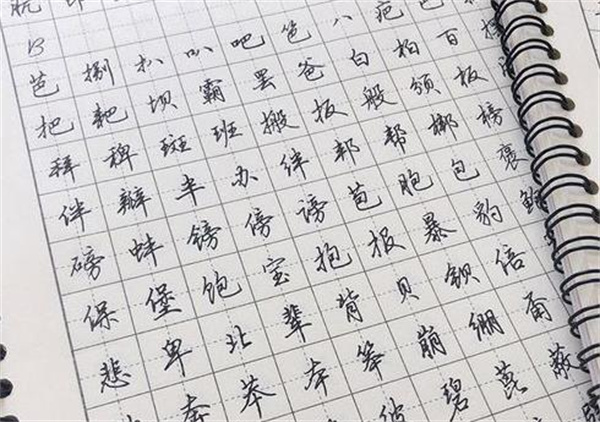 B
芭捌扒叭吧笆八疤巴
把耙坝霸罢爸白柏百
拜稗斑班搬扳般颁板
伴瓣半办绊邦帮梆榜
磅蚌镑傍谤苞胞包褒
保堡饱宝抱报暴豹鲍
悲卑北辈背贝钡倍
奔苯本笨崩绷甭
碧蓖蔽